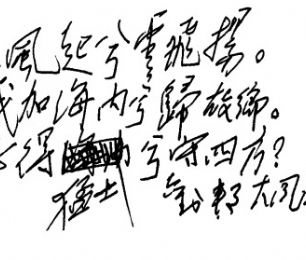 風起兮雲飛揚。
加海內兮歸故鄉。
得兮守四方?
猛士
劉邦大風